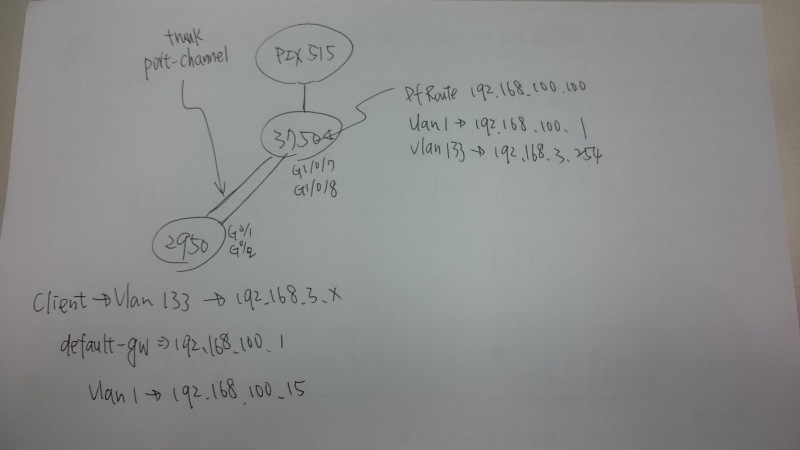 trunk
port-channel
PIX 515
3750G
Df Route 192.168.100.100
Vlan 1 → 192.168.100.1
Vlan 133 → 192.168.3.254
G1/0/7
G1/0/8
2950
G0/1
G0/2
Client → Vlan 133 → 192.168.3.x
default-gw ⇒ 192.168.100.1
Vlan 1 → 192.168.100.15